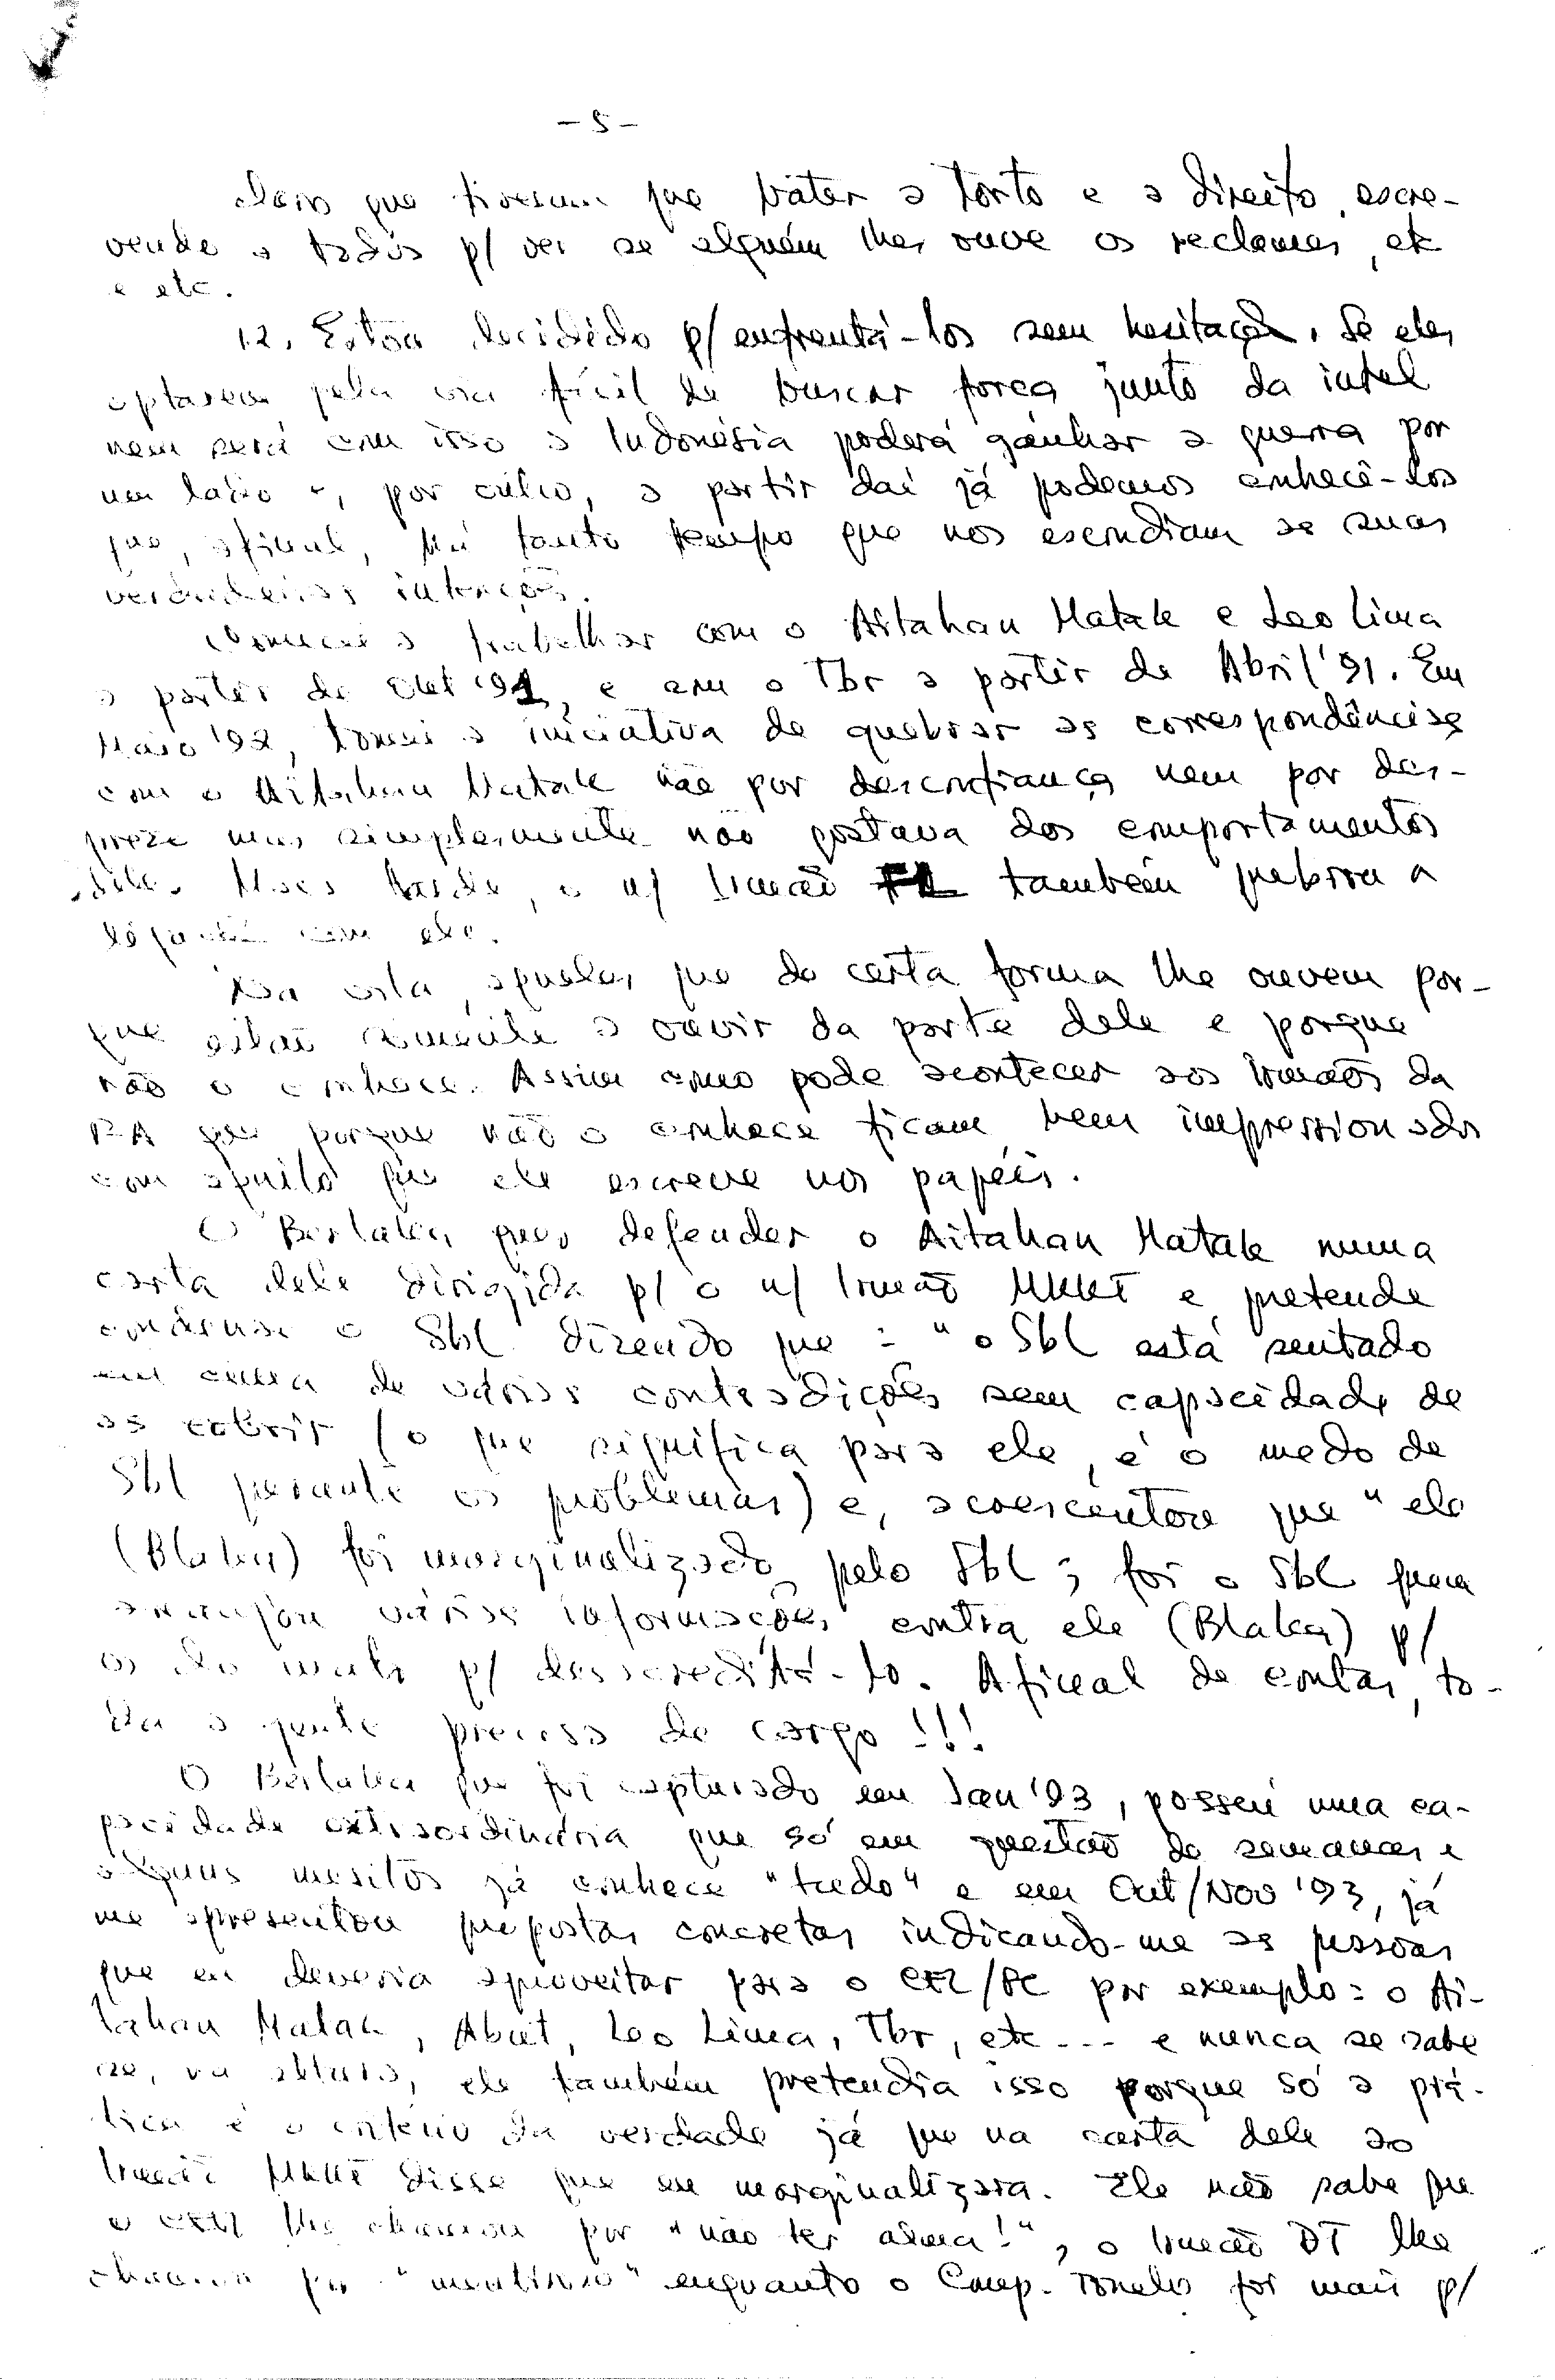 - 5 -
que tivessem que bater a torto e a direito, escre-
vendo a todos p/ ver se alguém lhes ouve os reclames, etc
e etc.
12. Estou decidido p/ enfrentá-los sem hesitação. Se eles
optarem pela via fácil de buscar força junto da intel
nem será com isso a Indonésia poderá ganhar a guerra por
um lado e, por outro, a partir daí já podemos conhecê-los
que, afinal, há tanto tempo que nos escondiam as suas
verdadeiras intenções.
Comecei a trabalhar com o Aitahan Matak e Leo Lima
a partir de 91, e com o Tbr a partir de Abril '91. Em
Maio '92, tomei a iniciativa de quebrar as correspondências
com o Aitahan Matak não por desconfiança nem por des-
prezo mas simplesmente não gostava dos comportamentos
dele. Mais tarde, o n/ Irmão também quebrou a
ligação com ele.
aqueles que de certa forma lhe ouvem por-
que estão somente a ouvir da parte dele e porque
não o conhece. Assim como pode acontecer aos Irmãos da
porque não o conhece ficam bem impressionados
com aquilo que ele escreve nos papéis.
O quis defender o Aitahan Matak numa
carta dele dirigida p/ o n/ Irmão e pretende
o Sbl dizendo que: "o Sbl está sentado
em cima de várias contradições sem capacidade de
as cobrir (o que significa para ele, é o medo de
Sbl perante os problemas) e, acrescentou que "ele
(Blakey) foi marginalizado pelo Sbl; foi o Sbl quem
arranjou várias informações contra ele (Blakey) p/
p/ dessacreditá-lo. Afinal de contas, to-
da a gente precisa de cargo!!!
O que foi capturado em Jan '93, possui uma ca-
pacidade extraordinária que só em questão de semanas e
alguns já conhece "tudo" e em Out/Nov '93, já
me apresentou propostas concretas indicando-me as pessoas
que eu deveria aproveitar para o por exemplo: o Ai-
tahan Matak, Abut, Leo Lima, Tbr, etc... e nunca se sabe
se, na altura, ele também pretendia isso porque só a prá-
tica é o critério da verdade já que na carta dele ao
Irmão disse que eu marginalizara. Ele não sabe que
o lhe chamou por "não ter alma!", o Irmão DT lhe
chamou por "mentiroso" enquanto o Comp. foi mais p/